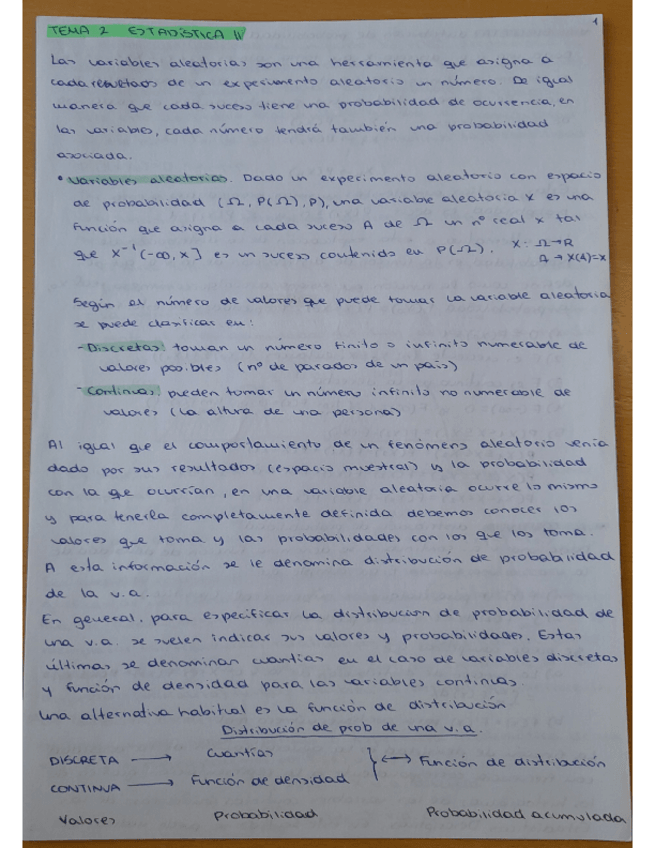 1
TEMA 2 ESTADÍSTICA II
Las variables aleatorias son una herramienta que asigna a
cada resultado de un experimento aleatorio un número. De igual
manera que cada suceso tiene una probabilidad de ocurrencia, en
las variables, cada número tendrá también una probabilidad
asociada.
• Variables aleatorias. Dado un experimento aleatorio con espacio
de probabilidad (Ω, P(Ω), P), una variable aleatoria X es una
función que asigna a cada suceso A de Ω un nº real x tal
que X⁻¹(-∞, x] es un suceso contenido en P(Ω). X: Ω→R
A → X(A)=x
Según el número de valores que puede tomar la variable aleatoria
se puede clasificar en:
- Discretas: toman un número finito o infinito numerable de
valores posibles (nº de parados de un país)
- Continuas: pueden tomar un número infinito no numerable de
valores (la altura de una persona)
Al igual que el comportamiento de un fenómeno aleatorio venía
dado por sus resultados (espacio muestral) y la probabilidad
con la que ocurrían, en una variable aleatoria ocurre lo mismo
y para tenerla completamente definida debemos conocer los
valores que toma y las probabilidades con los que los toma.
A esta información se le denomina distribución de probabilidad
de la v.a.
En general, para especificar la distribución de probabilidad de
una v.a. se suelen indicar sus valores y probabilidades. Estas
últimas se denominan cuantías en el caso de variables discretas
y función de densidad para las variables continuas.
Una alternativa habitual es la función de distribución
Distribución de prob de una v.a.
DISCRETA → Cuantías
CONTINUA → Función de densidad
} ↔ Función de distribución
Valores Probabilidad Probabilidad acumulada